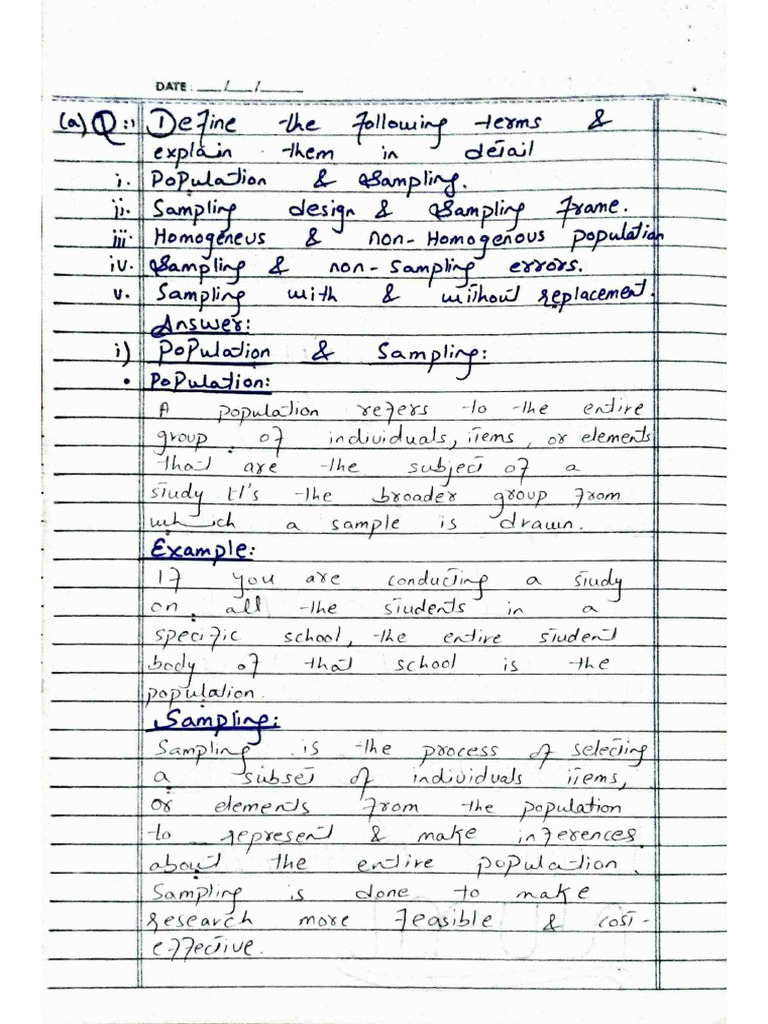 DATE: __/__/____
(a) Q:1 Define the following terms &
explain them in detail
i. Population & Sampling.
ii. Sampling design & Sampling Frame.
iii. Homogeneus & non-Homogenous population
iv. Sampling & non-Sampling errors.
v. Sampling with & without replacement.
Answer:
i) Population & Sampling:
• Population:
A population refers to the entire
group of individuals, items, or elements
that are the subject of a
study It's the broader group from
which a sample is drawn.
Example:
If you are conducting a study
on all the students in a
specific school, the entire student
body of that school is the
population.
Sampling:
Sampling is the process of selecting
a subset of individuals items,
or elements from the population
to represent & make inferences
about the entire population.
Sampling is done to make
research more feasible & cost-
effective.